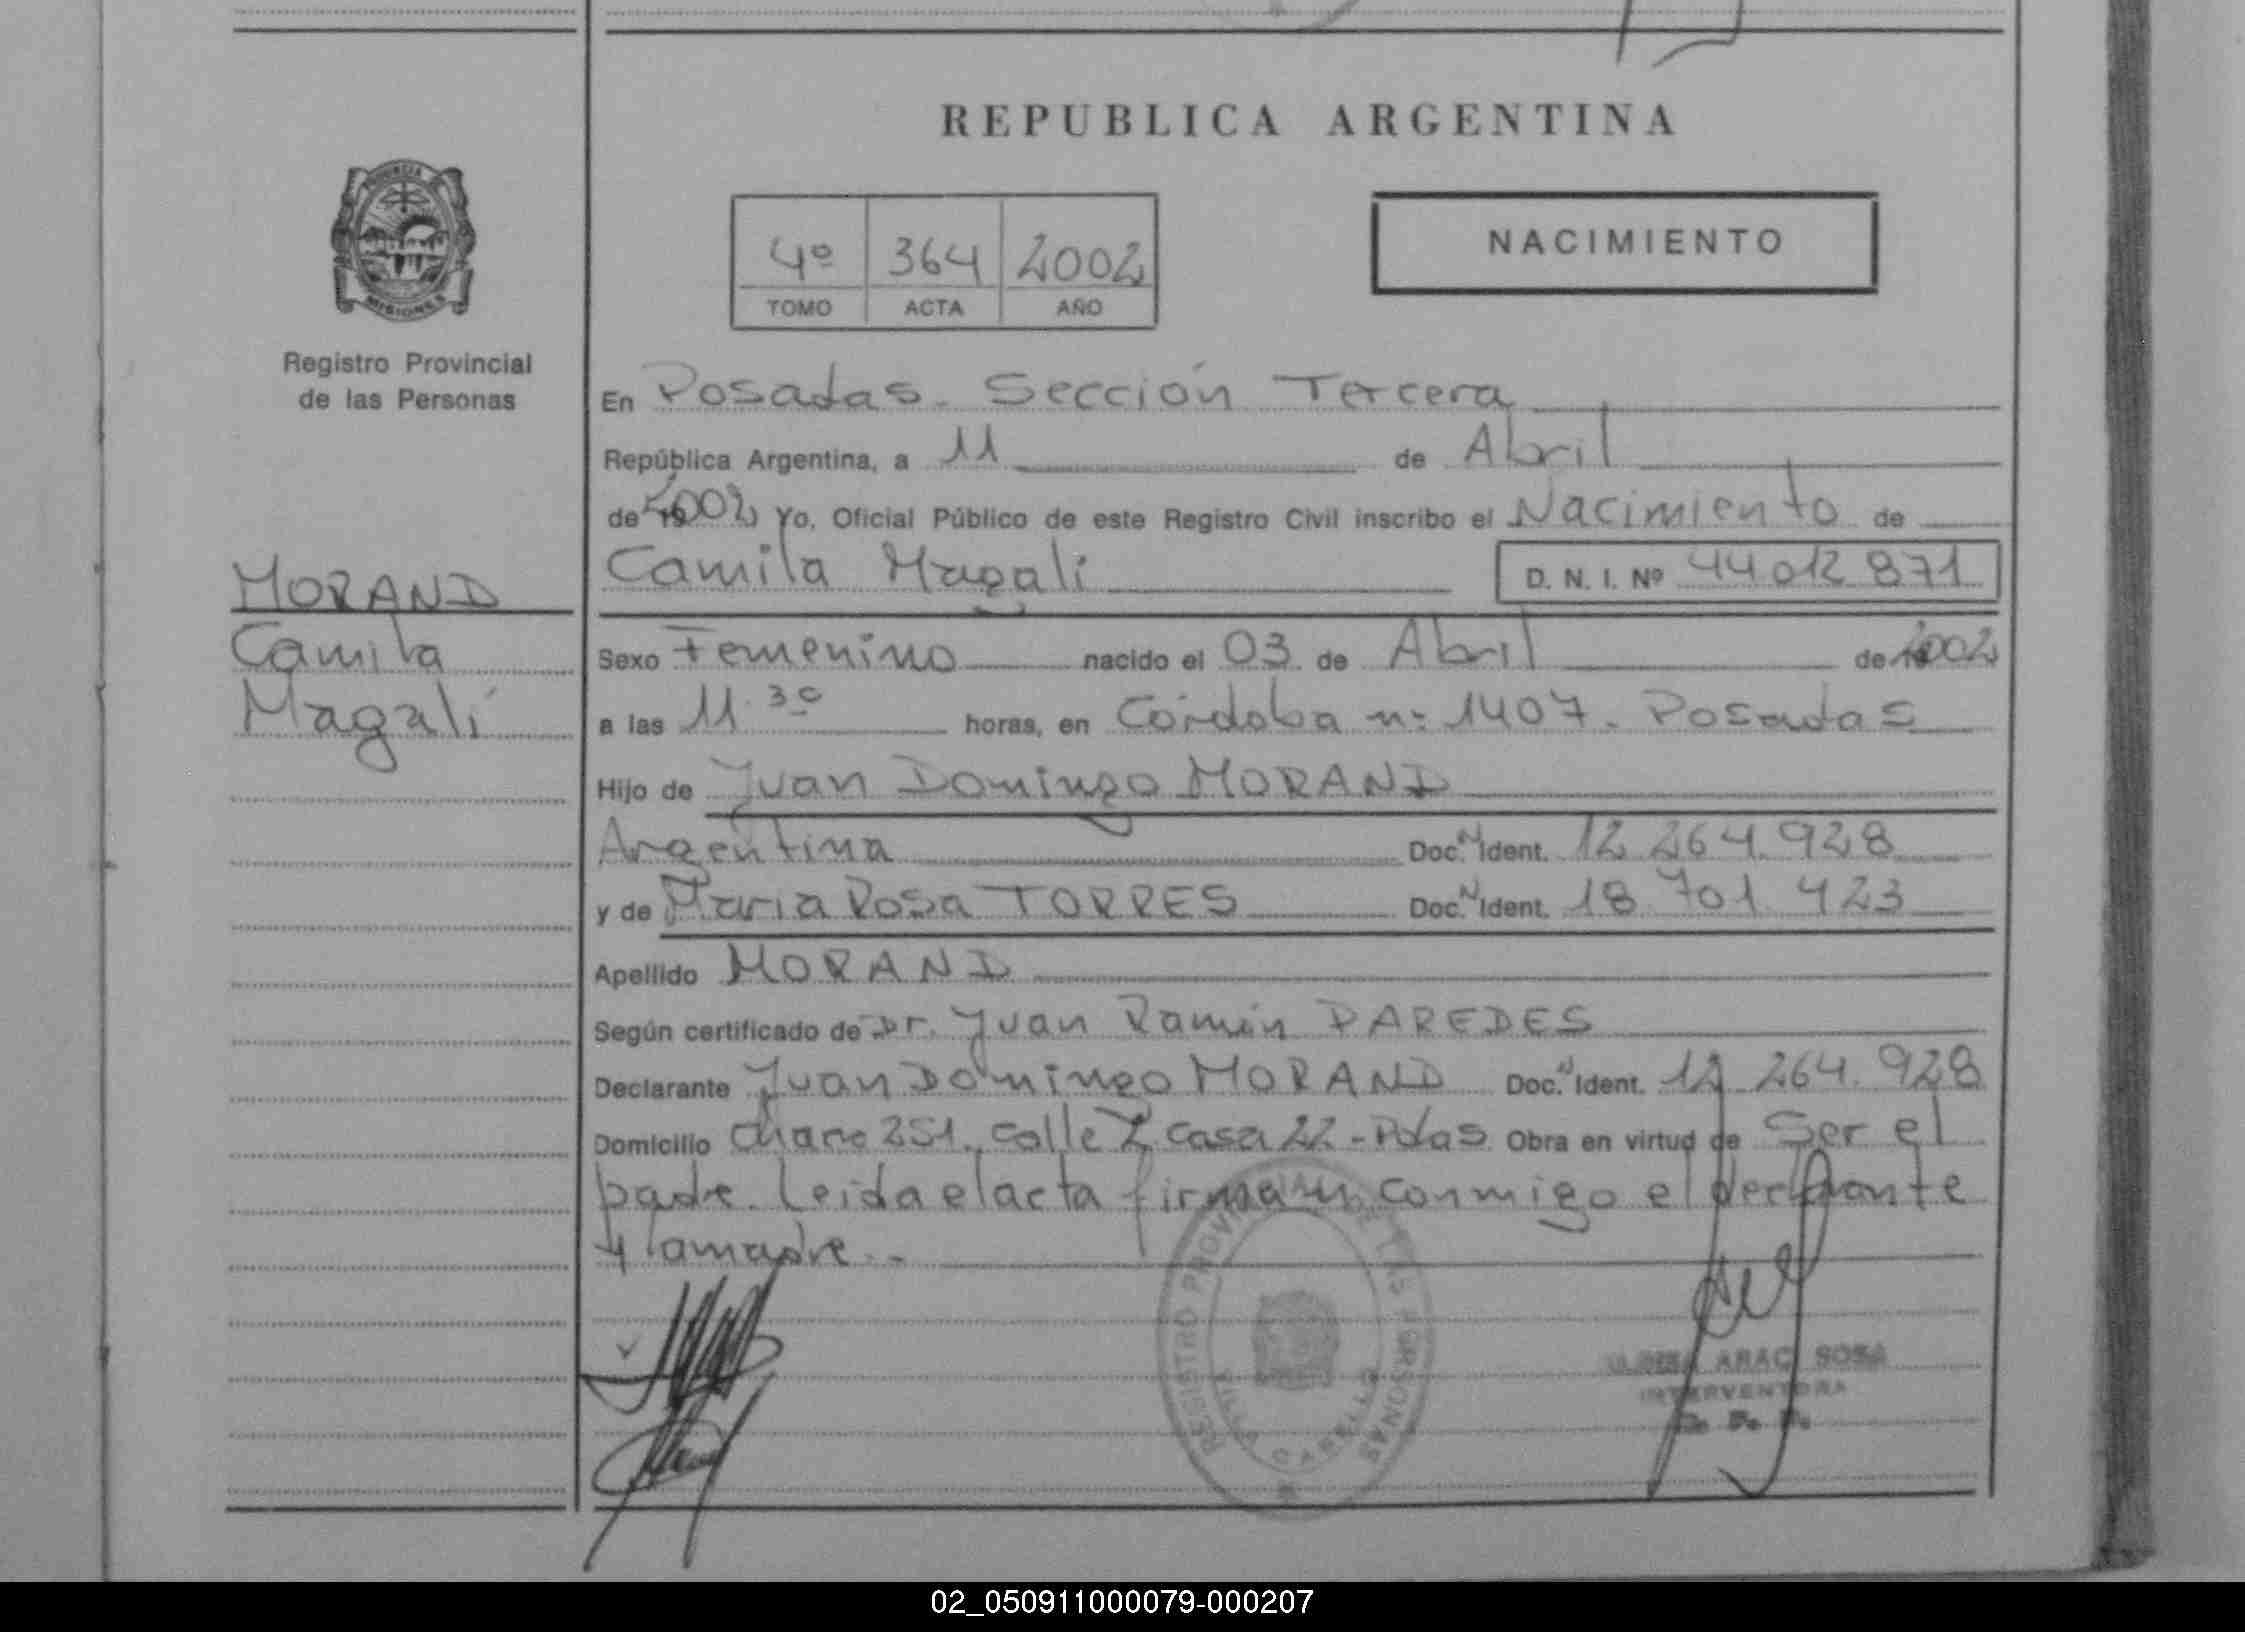 REPUBLICA ARGENTINA
PROVINCIA DE
MISIONES
Registro Provincial
de las Personas
4º 364 2002
TOMO ACTA AÑO
NACIMIENTO
En Posadas. Sección Tercera
República Argentina, a 11 de Abril
de 2002 Yo, Oficial Público de este Registro Civil inscribo el Nacimiento de
Camila Magali D. N. I. Nº 44 012 871
MORAND
Camila
Magalí
Sexo Femenino nacido el 03 de Abril de 2002
a las 11.30 horas, en Córdoba nº 1407. Posadas
Hijo de Juan Domingo MORAND
Argentina Doc. N Ident. 12 264.928
y de Maria Rosa TORRES Doc. N Ident. 18 701.423
Apellido MORAND
Según certificado de Dr. Juan Ramón PAREDES
Declarante Juan Domingo MORAND Doc. N Ident. 12 264.928
Domicilio Chacra 251. Calle Z Casa 22 - Pdas Obra en virtud de Ser el
padre. Leida el acta firman conmigo el declarante
y la madre.-
REGISTRO PROVINCIAL DE LAS PERSONAS
VILLA CABELLO
ARACI SOSA
INTERVENTORA
02_050911000079-000207